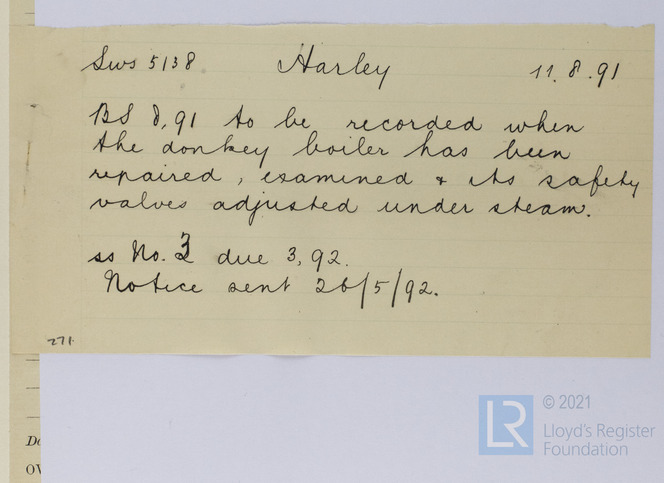 Sws 5138 Harley 11.8.91
BS 8,91 to be recorded when
the donkey boiler has been
repaired, examined & its safety
valves adjusted under steam.
ss No. 3 due 3,92.
Notice sent 26/5/92.
271.
LR
© 2021
Lloyd's Register
Foundation
Do
OV